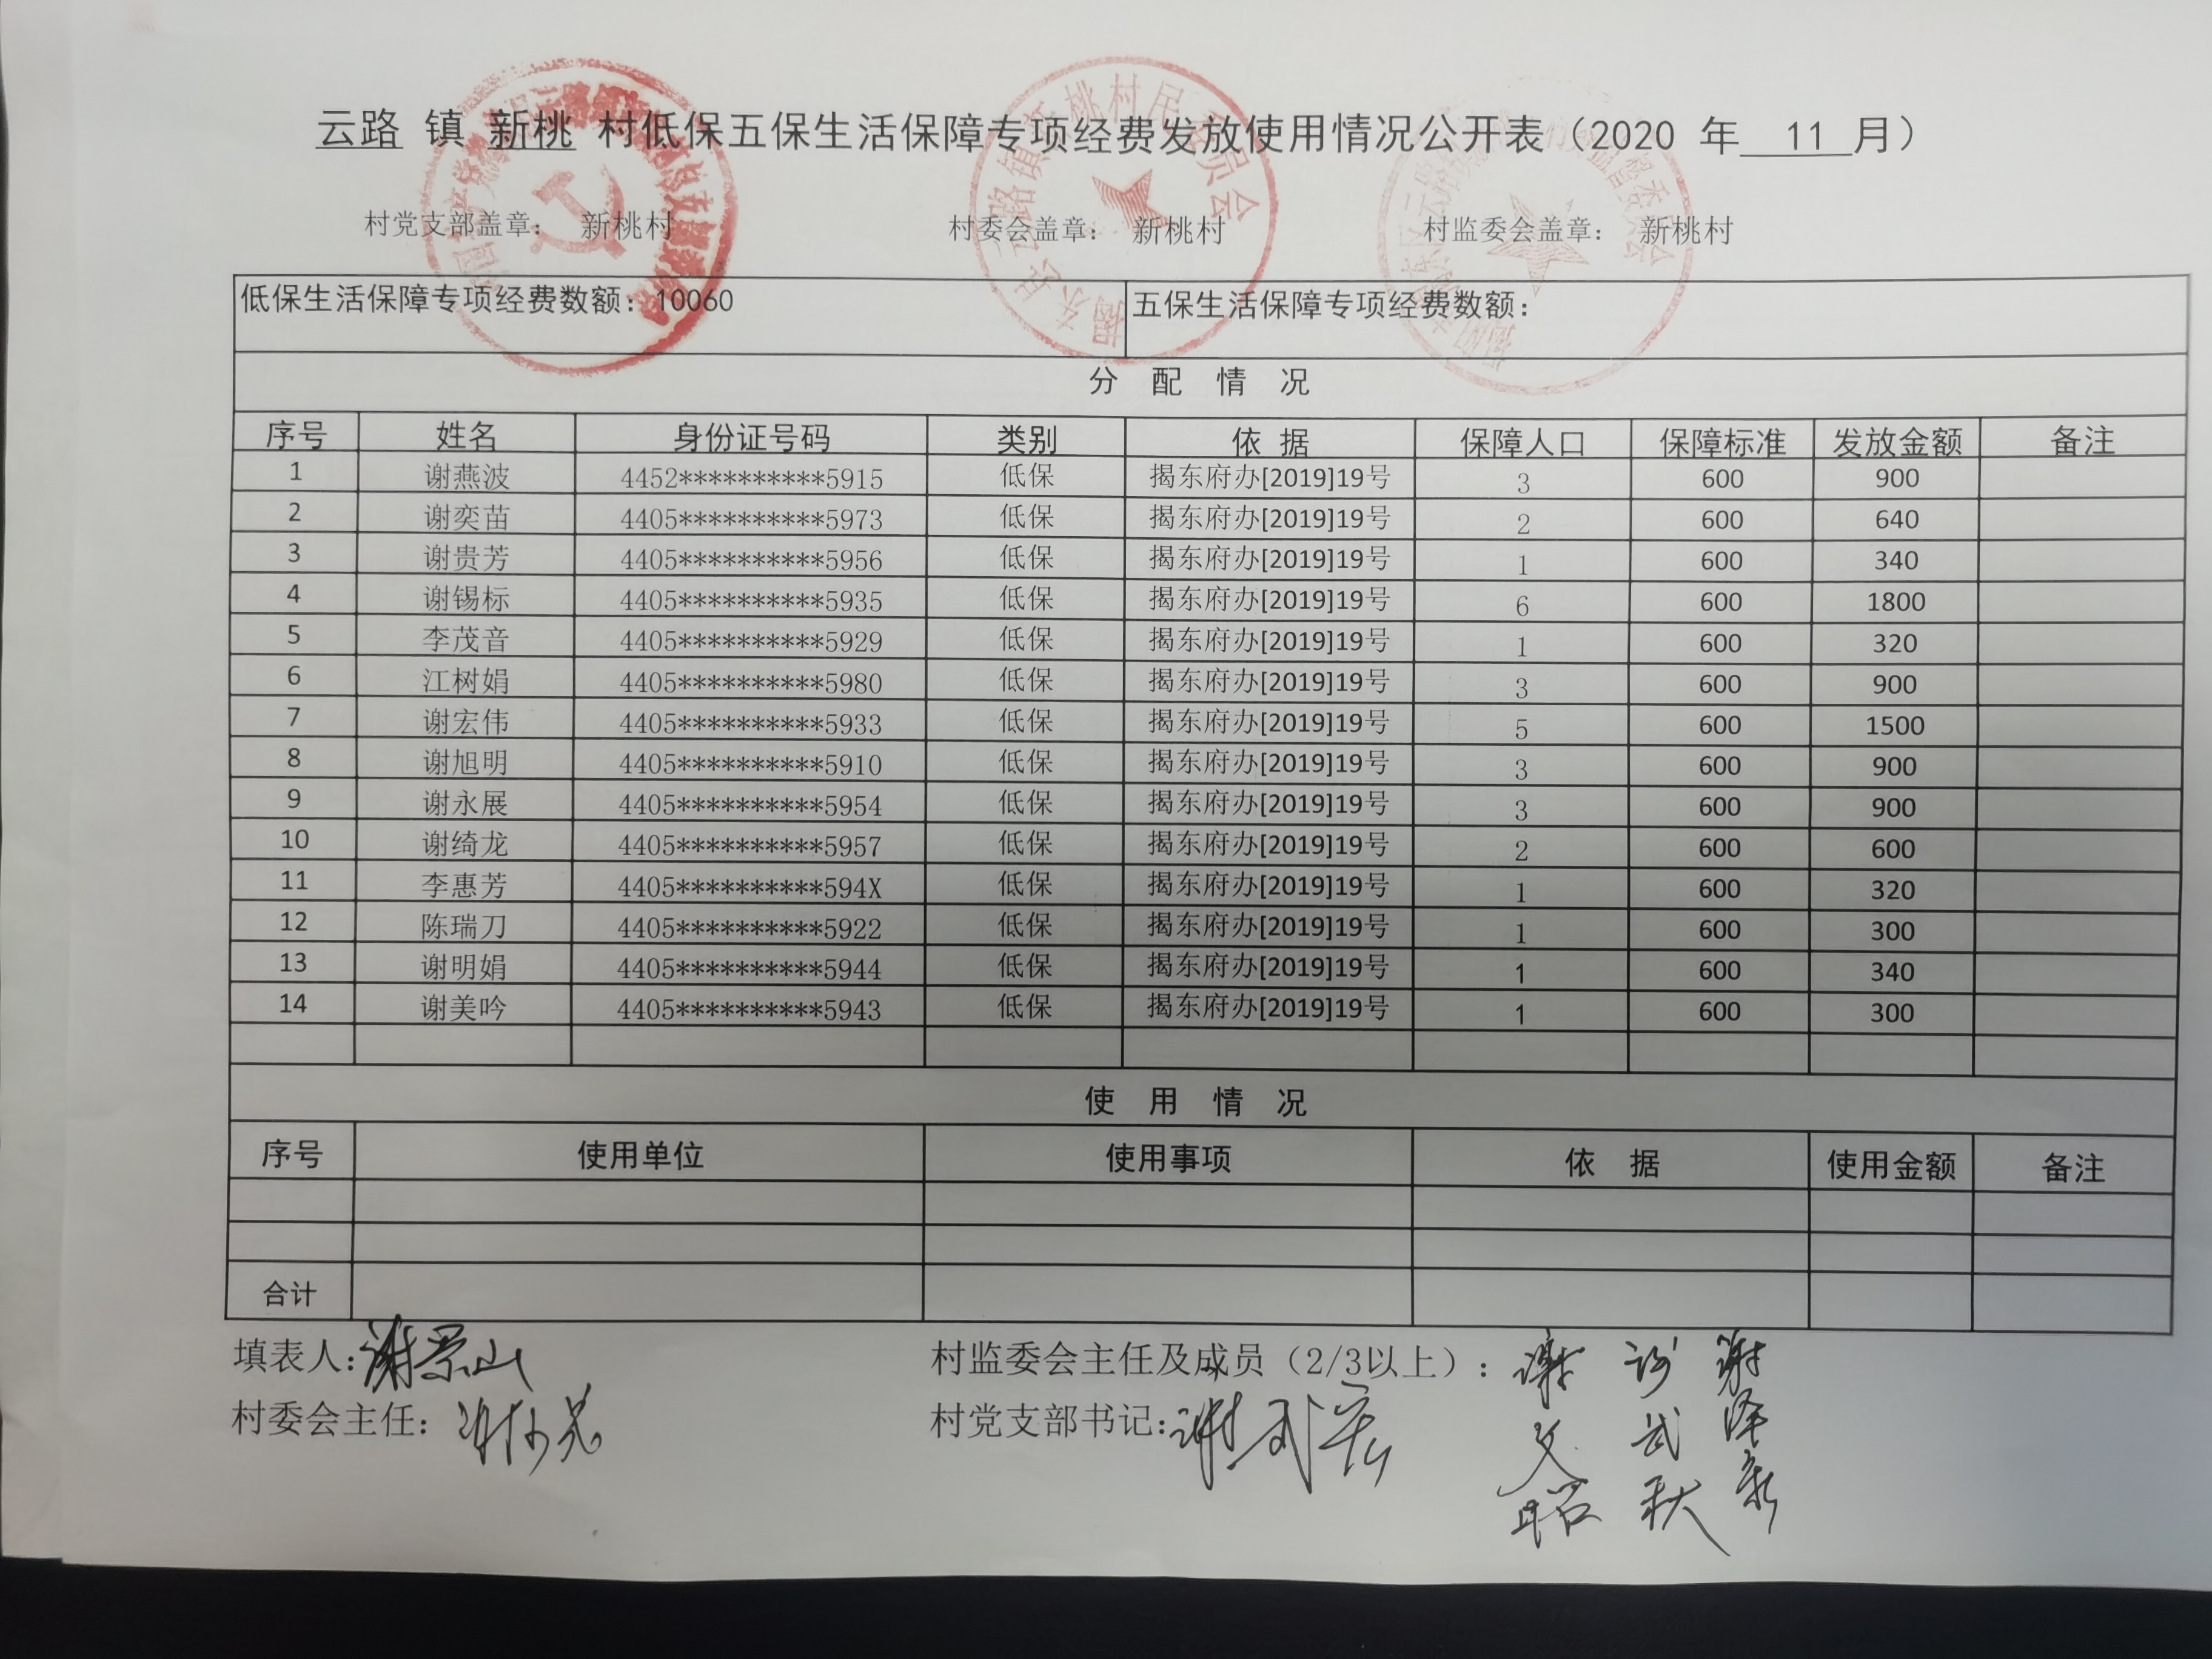 云路 镇 新桃 村低保五保生活保障专项经费发放使用情况公开表（2020 年 11 月）
村党支部盖章： 新桃村 村委会盖章： 新桃村 村监委会盖章： 新桃村
低保生活保障专项经费数额：10060 五保生活保障专项经费数额：
分 配 情 况
序号 姓名 身份证号码 类别 依 据 保障人口 保障标准 发放金额 备注
1 谢燕波 4452**********5915 低保 揭东府办[2019]19号 3 600 900
2 谢奕苗 4405**********5973 低保 揭东府办[2019]19号 2 600 640
3 谢贵芳 4405**********5956 低保 揭东府办[2019]19号 1 600 340
4 谢锡标 4405**********5935 低保 揭东府办[2019]19号 6 600 1800
5 李茂音 4405**********5929 低保 揭东府办[2019]19号 1 600 320
6 江树娟 4405**********5980 低保 揭东府办[2019]19号 3 600 900
7 谢宏伟 4405**********5933 低保 揭东府办[2019]19号 5 600 1500
8 谢旭明 4405**********5910 低保 揭东府办[2019]19号 3 600 900
9 谢永展 4405**********5954 低保 揭东府办[2019]19号 3 600 900
10 谢绮龙 4405**********5957 低保 揭东府办[2019]19号 2 600 600
11 李惠芳 4405**********594X 低保 揭东府办[2019]19号 1 600 320
12 陈瑞刀 4405**********5922 低保 揭东府办[2019]19号 1 600 300
13 谢明娟 4405**********5944 低保 揭东府办[2019]19号 1 600 340
14 谢美吟 4405**********5943 低保 揭东府办[2019]19号 1 600 300
使 用 情 况
序号 使用单位 使用事项 依 据 使用金额 备注
合计
填表人： 村监委会主任及成员（2/3以上）： 谢文昭
村委会主任： 村党支部书记：